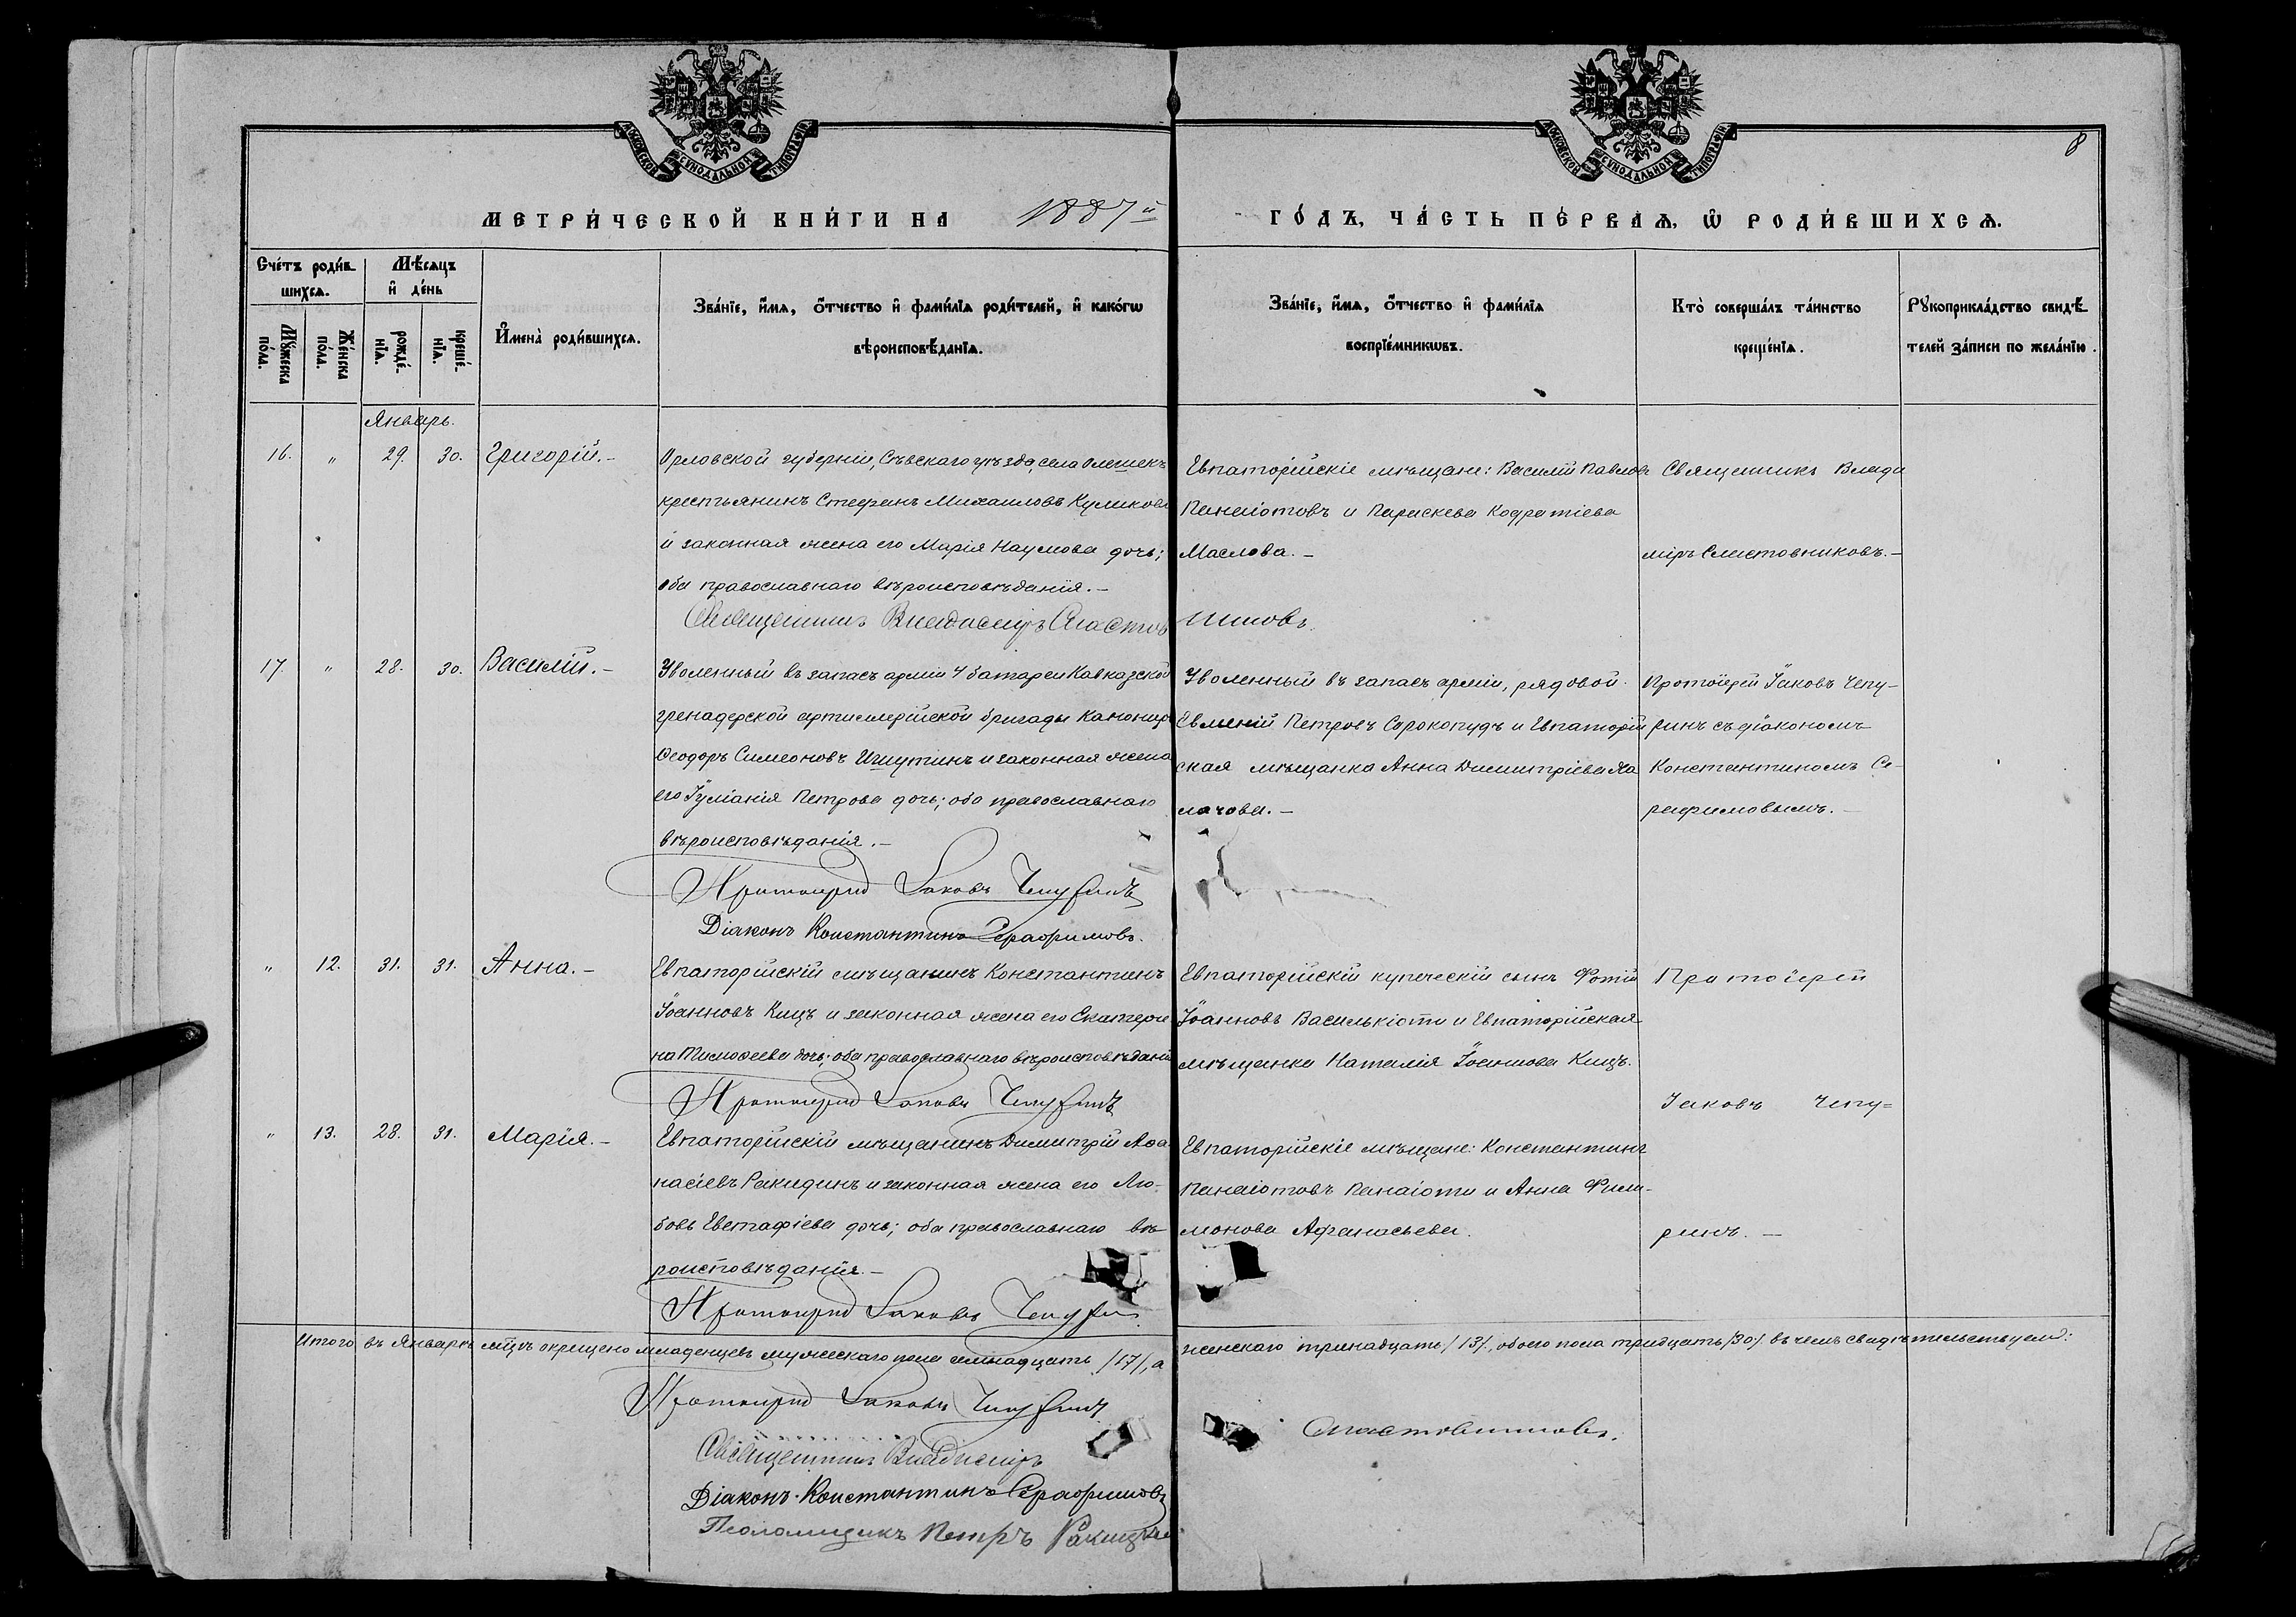 МОСКОВСКОЙ СУНОДАЛЬНОЙ ТИПОГРАФІИ
МОСКОВСКОЙ СУНОДАЛЬНОЙ ТИПОГРАФІИ
8
МЕТРИ́ЧЕСКОЙ КНИ́ГИ НА 1887й
ГО́ДЪ, ЧА́СТЬ ПЕ́РВАѦ, Ѽ РОДИ́ВШИХСѦ.
Сче́тъ роди́в-
шихсѧ.
Мꙋжеска по́ла.
Же́нска по́ла.
Мѣ́сѧцъ
и҆ де́нь
рожде́-
нїѧ.
креще́-
нїѧ.
И҆мена̀ роди́вшихсѧ.
Зва́нїе, и҆́мѧ, ѻ҆́тчество и҆ фами́лїѧ роди́телей, и҆ како́гѡ
вѣроисповѣ́данїѧ.
Зва́нїе, и҆́мѧ, ѻ҆́тчество и҆ фами́лїѧ
воспрїе́мникѡвъ.
Кто̀ соверша́лъ та́инство
креще́нїѧ.
Рꙋкоприкла́дство свидѣ́-
телей за́писи по жела́нїю.
Январь.
16. " 29. 30. Григорій.-
Орловской губерніи, Сѣвскаго уѣзда, села Олешекъ
крестьянинъ Стефанъ Михаиловъ Куликовъ
и законная жена его Марія Наумова дочь;
оба православнаго вѣроисповѣданія.-
Евпаторійскіе мѣщане: Василій Павловъ
Панаіотовъ и Параскева Кодратіева
Маслова.-
Священникъ Влади
міръ Сластовниковъ.-
Священникъ Владиміръ Сластов
никовъ.
17. " 28. 30. Василій.-
Уволенный въ запасъ арміи 4 батареи Кавказской
гренадерской артиллерійской бригады Канониръ
Ѳеодоръ Симеоновъ Ишутинъ и законная жена
его Іуліанія Петрова дочь; оба православнаго
вѣроисповѣданія.-
Уволенный въ запасъ арміи, рядовой
Евменій Петровъ Сорокопудъ и Евпаторій
ская мѣщанка Анна Димитріева Ка
лачова.-
Протоіерей Іаковъ Чепу-
ринъ съ діакономъ
Константиномъ Се-
рафимовымъ.-
Протоіерей Іаковъ Чепуринъ
Діаконъ Константинъ Серафимовъ.
" 12. 31. 31. Анна.-
Евпаторійскій мѣщанинъ Константинъ
Іоанновъ Кицъ и законная жена его Екатери
на Тимоѳеева дочь; оба православнаго вѣроисповѣданія
Евпаторійскій купеческій сынъ Фотій
Іоанновъ Василькіоти и Евпаторійская
мѣщанка Наталія Іоаннова Кицъ.
Протоіерей
Іаковъ Чепу=
ринъ.-
Протоіерей Іаковъ Чепуринъ
" 13. 28. 31. Марія.-
Евпаторійскій мѣщанинъ Димитрій Аѳа
насіевъ Ракидинъ и законная жена его Лю-
бовь Евстафіева дочь; оба православнаго вѣ-
роисповѣданія.-
Евпаторійскіе мѣщане: Константинъ
Панаіотовъ Панаіоти и Анна Фили-
монова Афанасьева.
Протоіерей Іаковъ Чепури
Итого въ Январѣ мцѣ окрещено младенцевъ мужескаго пола семнадцать /17/, а
женскаго тринадцать /13/, обоего пола тридцать /30/ въ чемъ свидѣтельствуемъ:
Протоіерей Іаковъ Чепуринъ
Священникъ Владиміръ
Сластовниковъ.
Діаконъ Константинъ Серафимовъ
Псаломщикъ Петръ